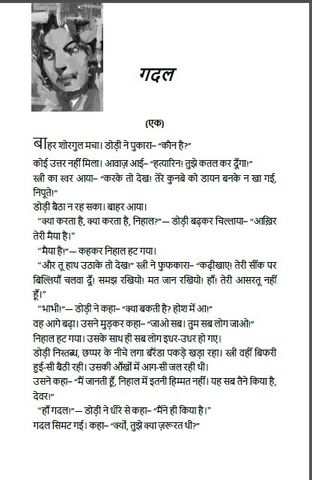 गदल
(एक)
बाहर शोरगुल मचा। डोड़ी ने पुकारा– “कौन है?”
कोई उत्तर नहीं मिला। आवाज़ आई– “हत्यारिन! तुझे कतल कर दूँगा!”
स्त्री का स्वर आया– “करके तो देख! तेरे कुनबे को डायन बनके न खा गई,
निपूते!”
डोड़ी बैठा न रह सका। बाहर आया।
“क्या करता है, क्या करता है, निहाल?”— डोड़ी बढ़कर चिल्लाया– “आख़िर
तेरी मैया है।”
“मैया है!”— कहकर निहाल हट गया।
“और तू हाथ उठाके तो देख!” स्त्री ने फुफकारा– “कढ़ीखाए! तेरी सींक पर
बिल्लियाँ चलवा दूँ! समझ रखियो! मत जान रखियो! हाँ! तेरी आसरतू नहीं
हूँ।”
“भाभी!”— डोड़ी ने कहा– “क्या बकती है? होश में आ!”
वह आगे बढ़ा। उसने मुड़कर कहा– “जाओ सब। तुम सब लोग जाओ!”
निहाल हट गया। उसके साथ ही सब लोग इधर-उधर हो गए।
डोड़ी निस्तब्ध, छप्पर के नीचे लगा बरैंडा पकड़े खड़ा रहा। स्त्री वहीं बिफरी
हुई-सी बैठी रही। उसकी आँखों में आग-सी जल रही थी।
उसने कहा– “मैं जानती हूँ, निहाल में इतनी हिम्मत नहीं। यह सब तैने किया है,
देवर!”
“हाँ गदल!”— डोड़ी ने धीरे से कहा– “मैंने ही किया है।”
गदल सिमट गई। कहा– “क्यों, तुझे क्या ज़रूरत थी?”